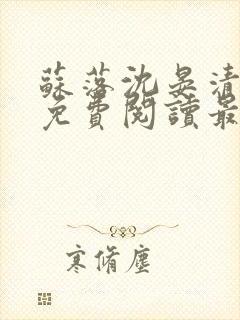 蘇落沈晏清
免費閱讀最
寒脩塵